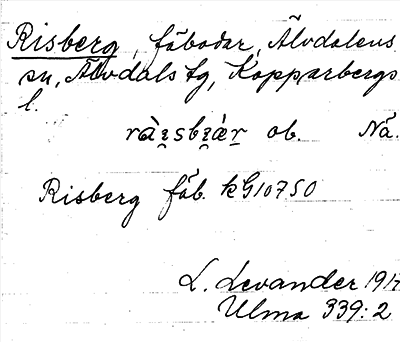 Risberg, fäbodar, Älvdalens
sn, Älvdals tg, Kopparbergs
l.
ob. Nä.
Risberg fäb. kG10750
L. Levander 191
Ulma 339:2